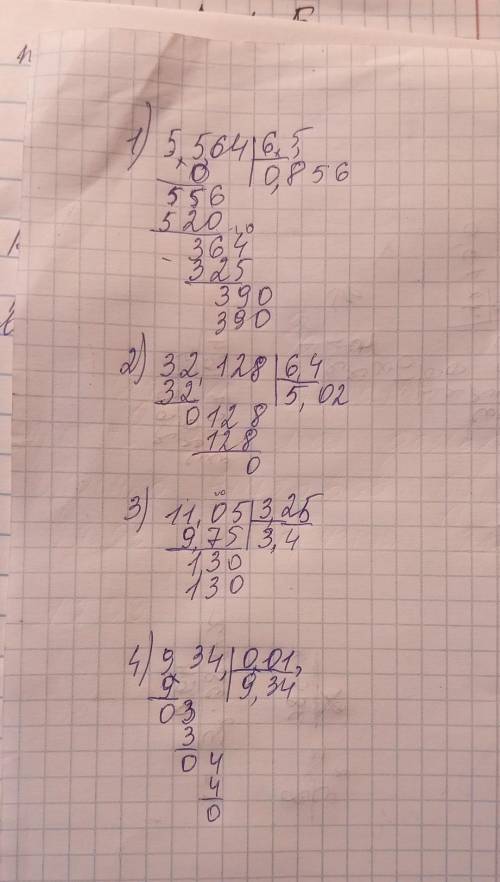 1) 5,564 | 6,5
0 | 0,856
556
520
364
- 325
390
390
2) 32,128 | 6,4
32 | 5,02
0128
128
0
3) 11,05 | 3,25
9,75 | 3,4
130
130
4) 9,34, | 0,01,
9 | 9,34
03
3
04
4
0